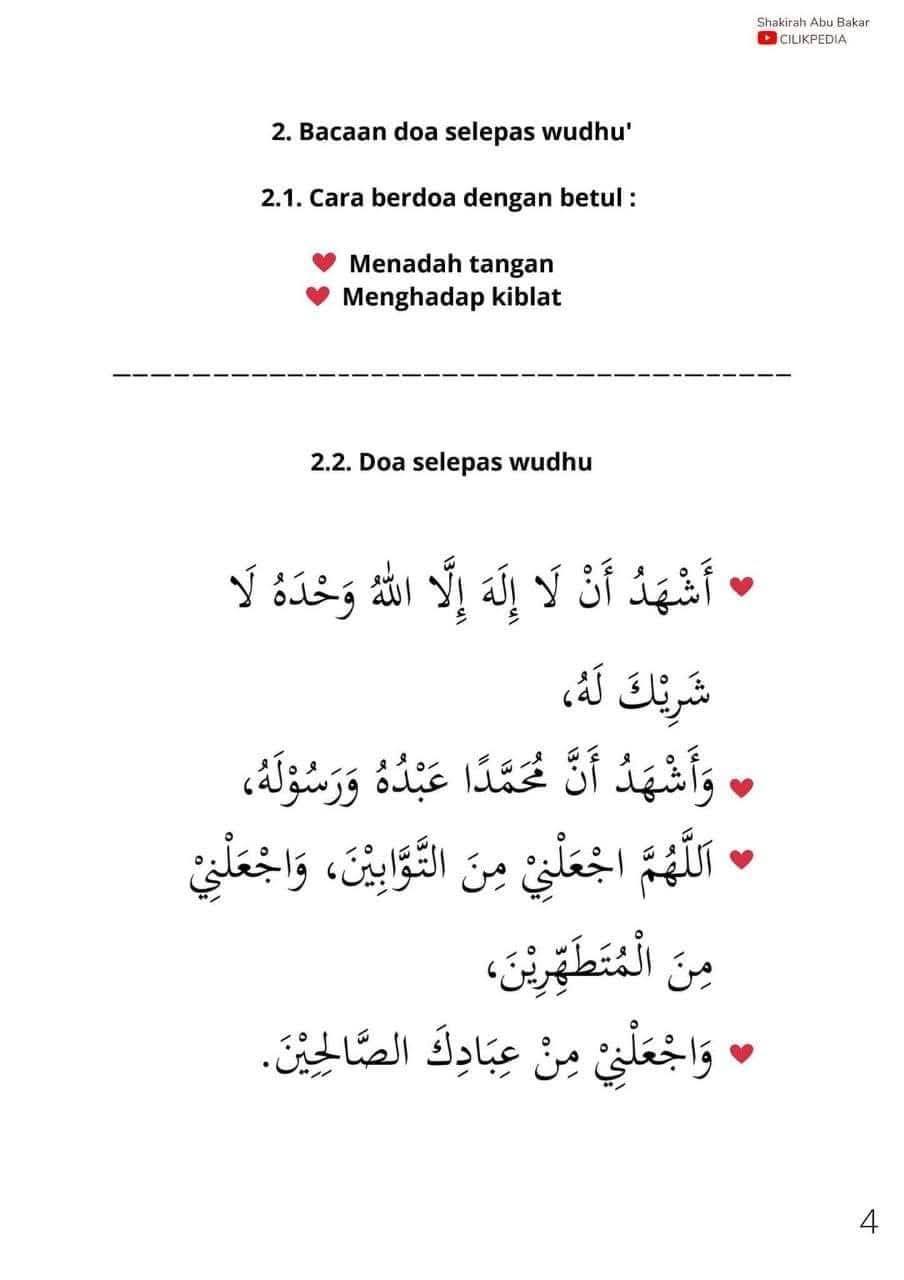 Shakirah Abu Bakar
CILIKPEDIA
2. Bacaan doa selepas wudhu'
2.1. Cara berdoa dengan betul :
Menadah tangan
Menghadap kiblat
2.2. Doa selepas wudhu
أَشْهَدُ أَنْ لَا إِلَهَ إِلَّا اللهُ وَحْدَهُ لَا
شَرِيْكَ لَهُ،
وَأَشْهَدُ أَنَّ مُحَمَّدًا عَبْدُهُ وَرَسُوْلَهُ،
اَللَّهُمَّ اجْعَلْنِيْ مِنَ التَّوَّابِيْنَ، وَاجْعَلْنِيْ
مِنَ الْمُتَطَهِّرِيْنَ،
وَاجْعَلْنِيْ مِنْ عِبَادِكَ الصَّالِحِيْنَ.
4